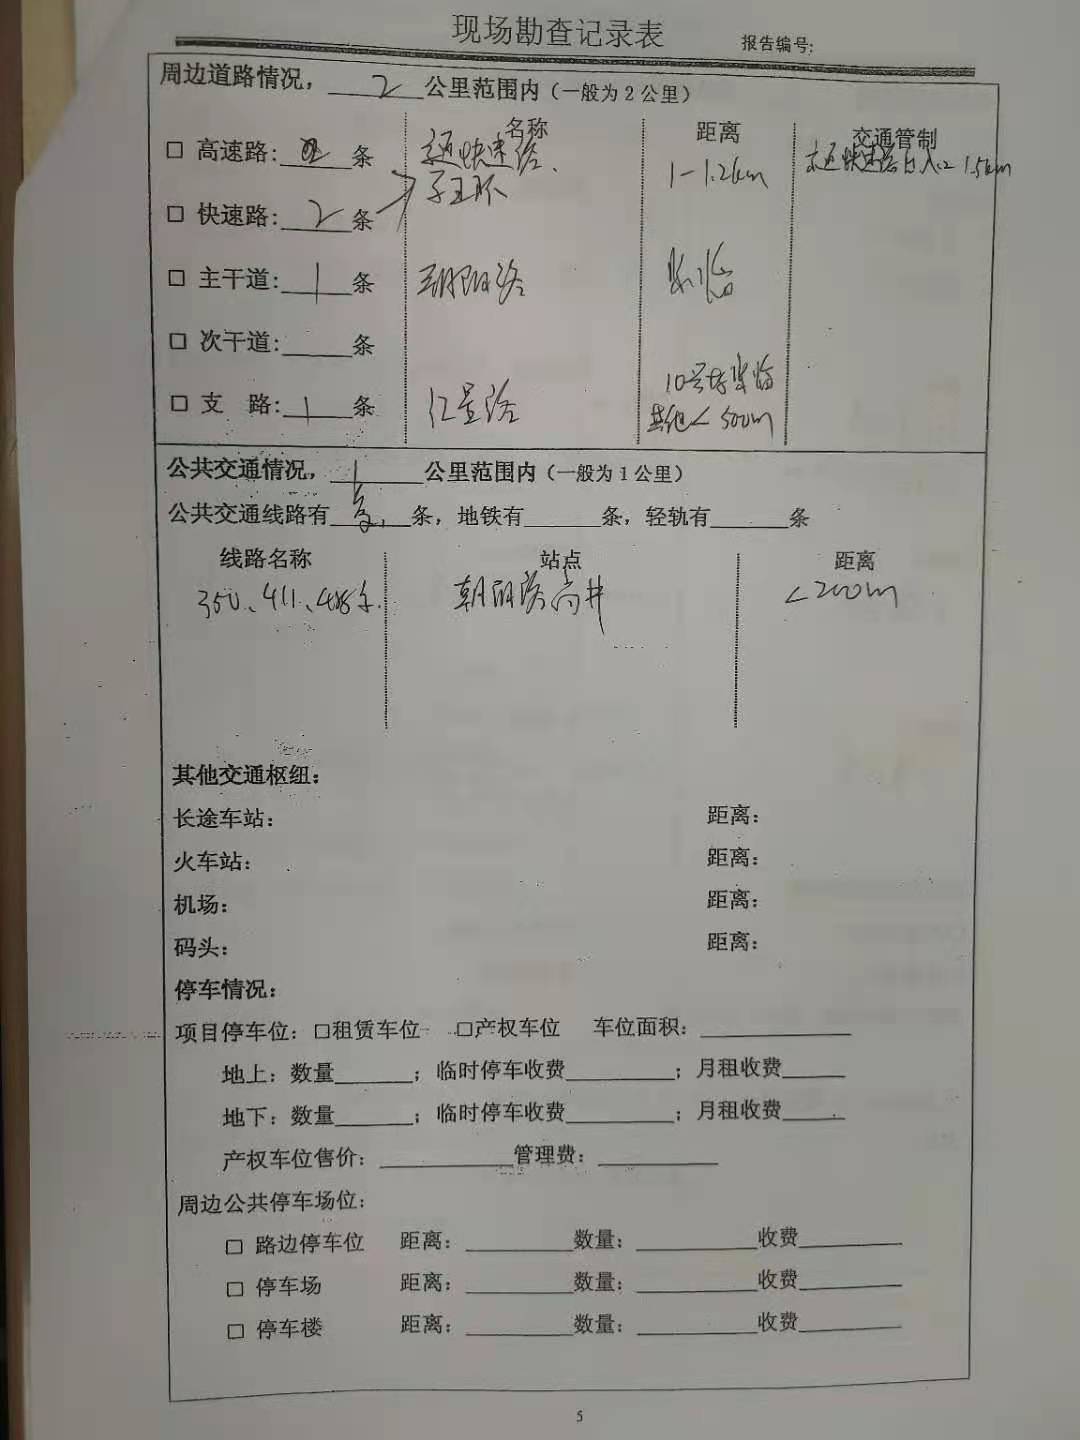 现场勘查记录表
报告编号:
周边道路情况, 2 公里范围内（一般为2公里）
名称 距离 交通管制
□ 高速路: 条 京通快速路、 1-1.2km 京通快速路出入口 1.5km
□ 快速路: 2 条 东五环
□ 主干道: 1 条 朝阳路 紧临
□ 次干道: 条
□ 支 路: 1 条 路 10号楼紧临
其他<500m
公共交通情况, 1 公里范围内（一般为1公里）
公共交通线路有 多 条，地铁有 条，轻轨有 条
线路名称 站点 距离
350、411、488 朝阳路高井 <200m
其他交通枢纽：
长途车站： 距离：
火车站： 距离：
机场： 距离：
码头： 距离：
停车情况：
项目停车位：□租赁车位 □产权车位 车位面积：
地上：数量 ；临时停车收费 ；月租收费
地下：数量 ；临时停车收费 ；月租收费
产权车位售价： 管理费：
周边公共停车场位：
□ 路边停车位 距离： 数量： 收费
□ 停车场 距离： 数量： 收费
□ 停车楼 距离： 数量： 收费
5